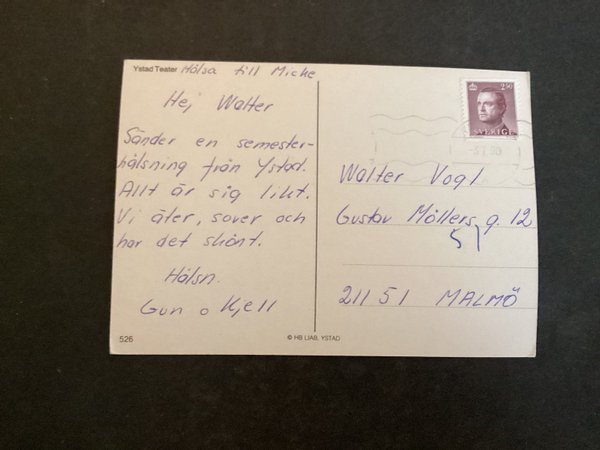 Ystad Teater Hälsa till Micke
Hej Walter
Sänder en semester-
hälsning från Ystad.
Allt är sig likt.
Vi äter, sover och
har det skönt.
Hälsn.
Gun o Kjell
526
© HB LJAB, YSTAD
2.50
SVERIGE
Walter Vogl
Gustav Möllers g. 12
211 51 MALMÖ